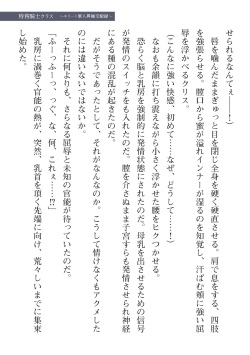 特務騎士クリス
～エリート軍人異種交配録～
せられるなんてぇ――！）
　唇を噛んだままぎゅっと目を閉じ全身を硬く硬直させる。肩で息をする。四肢
を強張らせる。膣口から蜜が溢れインナーが湿るのを知覚し、汗ばむ頬に強い屈
辱を浮かべるクリス。
（こんなに強い快感、初めて――なぜ、どうして……）
　なおも余韻に打ち震えながら小さく浮かせた腰をヒクつかせる。
　恐らく脳と乳房が強制的に発情状態にされたのだ。母乳を出させるための信号
が発情のスイッチをも入れたのだ。膣を介さぬまま子宮すらも発情させられ神経
にある種の混乱が起きたのだ。
　だがそうであったとして、それがなんなのか。こうして情けなくもアクメした
のには違いないではないか。
　それに何よりも、さらなる屈辱と未知の官能が待っていたのだ。
「ふーっふーっ、っぐ、な、何、これぇ……⁉」
　乳房に渦巻く官能の熱が、突然、乳首を頂く先端に向け、荒々しいまでに集束
し始めた。